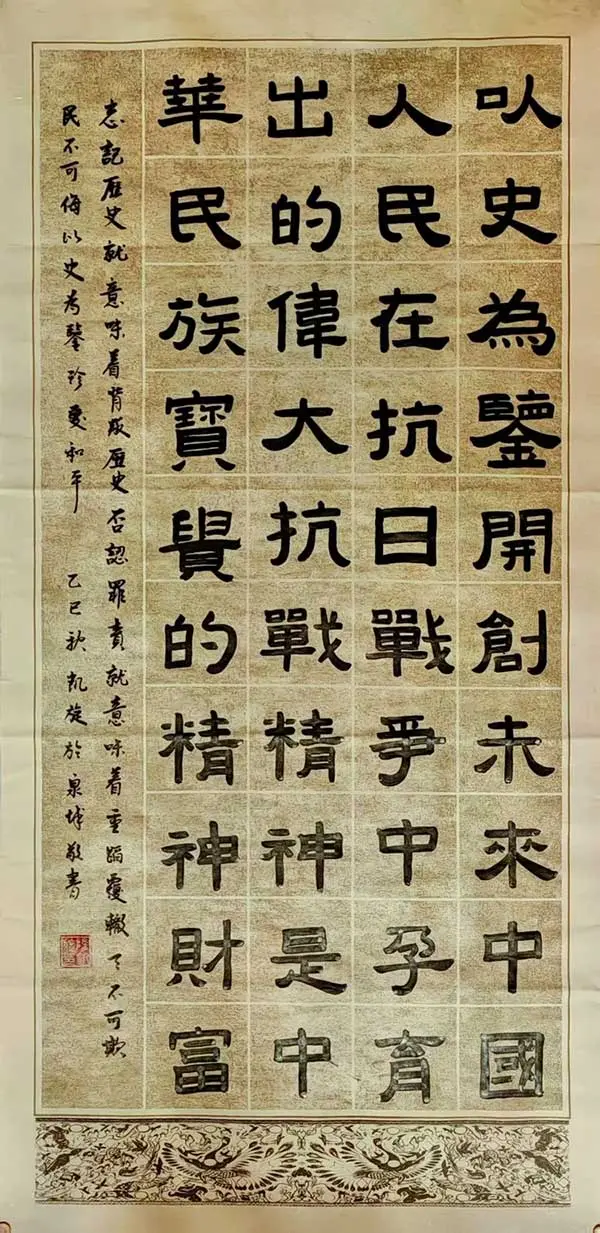 以史為鑒開創未來中國
人民在抗日戰爭中孕育
出的偉大抗戰精神是中
華民族寶貴的精神財富
忘記歷史就意味着背叛歷史否認罪責就意味着重蹈覆轍天不可欺
民不可侮以史為鑒珍愛和平 乙巳秋凱旋於泉城敬書